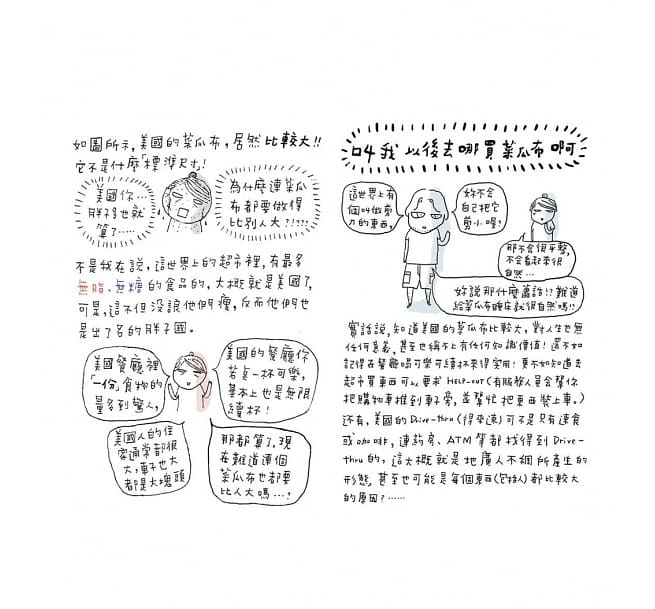 如圖所示,美國的菜瓜布,居然比較大!!
它不是什麼「標準尺寸」!
美國你…
胖子多也就
算了……
為什麼連菜瓜
布都要做得
比別人大?!???
不是我在說,這世界上的超市裡,有最多
無脂、無糖的食品的,大概就是美國了,
可是,這不但沒讓他們瘦,反而他們也
是出了名的胖子國。
美國餐廳裡
「一份」食物的
量多到驚人,
美國的餐廳你
若点一杯可樂,
基本上也是無限
續杯!
美國人的住
家通常都很
大,車子也大
都是大塊頭
那都算了,現
在難道連個
菜瓜布也都要
比人大嗎…?
叫我以後去哪買菜瓜布啊
這世界上有
個叫做剪
刀的東西,
妳不會
自己把它
剪小喔?
那不會很平整,
不會看起來很
自然…
妳說那什麼蕭話!!難道
給菜瓜布睡床就很自然嗎!?
實話說,知道美國的菜瓜布比較大,對人生也無
任何意義,甚至也稱不上有任何知識價值!還不如
記得在餐廳喝可樂可續杯來得實用!更不如知道去
超市買東西可以要求 HELP-OUT(有服務人員會幫你
把購物車推到車旁,並幫忙把東西裝上車。)
還有,美國的 Drive-thru (得來速)可不是只有速食
或咖啡,連藥房、ATM 等都找得到 Drive-
thru 的,這大概就是地廣人不細所產生的
形態,甚至也可能是每個東西(包括人)都比較大
的原因?……